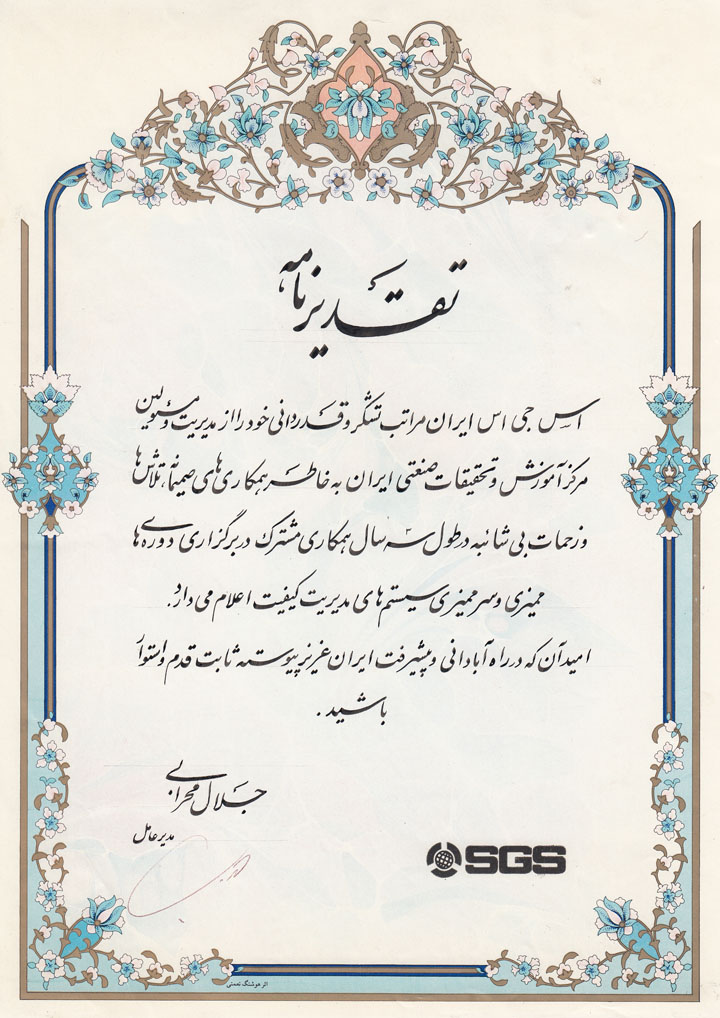 تقدیرنامه
اس جی اس ایران مراتب تشکر و قدردانی خود را از مدیریت و مسئولین
مرکز آموزش و تحقیقات صنعتی ایران به خاطر همکاری های صمیمانه، تلاش ها
و زحمات بی شائبه در طول سه سال همکاری مشترک در برگزاری دوره های
ممیزی و سر ممیزی سیستم های مدیریت کیفیت اعلام می دارد.
امید آن که در راه آبادانی و پیشرفت ایران عزیز پیوسته ثابت قدم و استوار
باشید .
جلال محرابی
مدیر عامل
SGS
اثر هوشنگ نعمتی